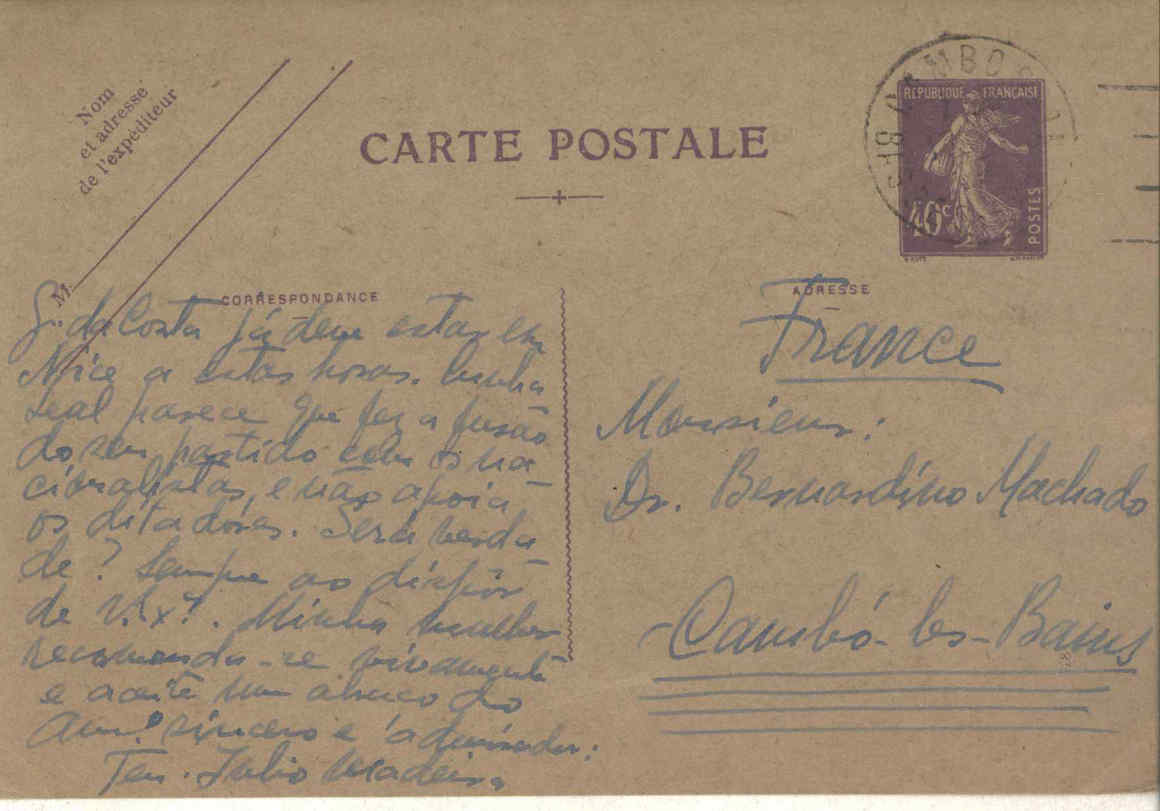 Nom
et adresse
de l'expéditeur
M.
CARTE POSTALE
RÉPUBLIQUE FRANÇAISE
40c
POSTES
CORRESPONDANCE
ADRESSE
G. da Costa já deve estar em
Nice a estas horas. Cunha
Leal parece que fez a fusão
do seu partido com os na-
cionalistas, e não apoia
os ditadores. Será verda-
de? Sempre ao dispôr
de V. Exª. Minha mulher
recomenda-se vivamente
e aceite um abraço do
Amº sincero e admirador:
Ten. Julio Madeira
France
Monsieur:
Dr. Bernardino Machado
-Cambó-les-Bains